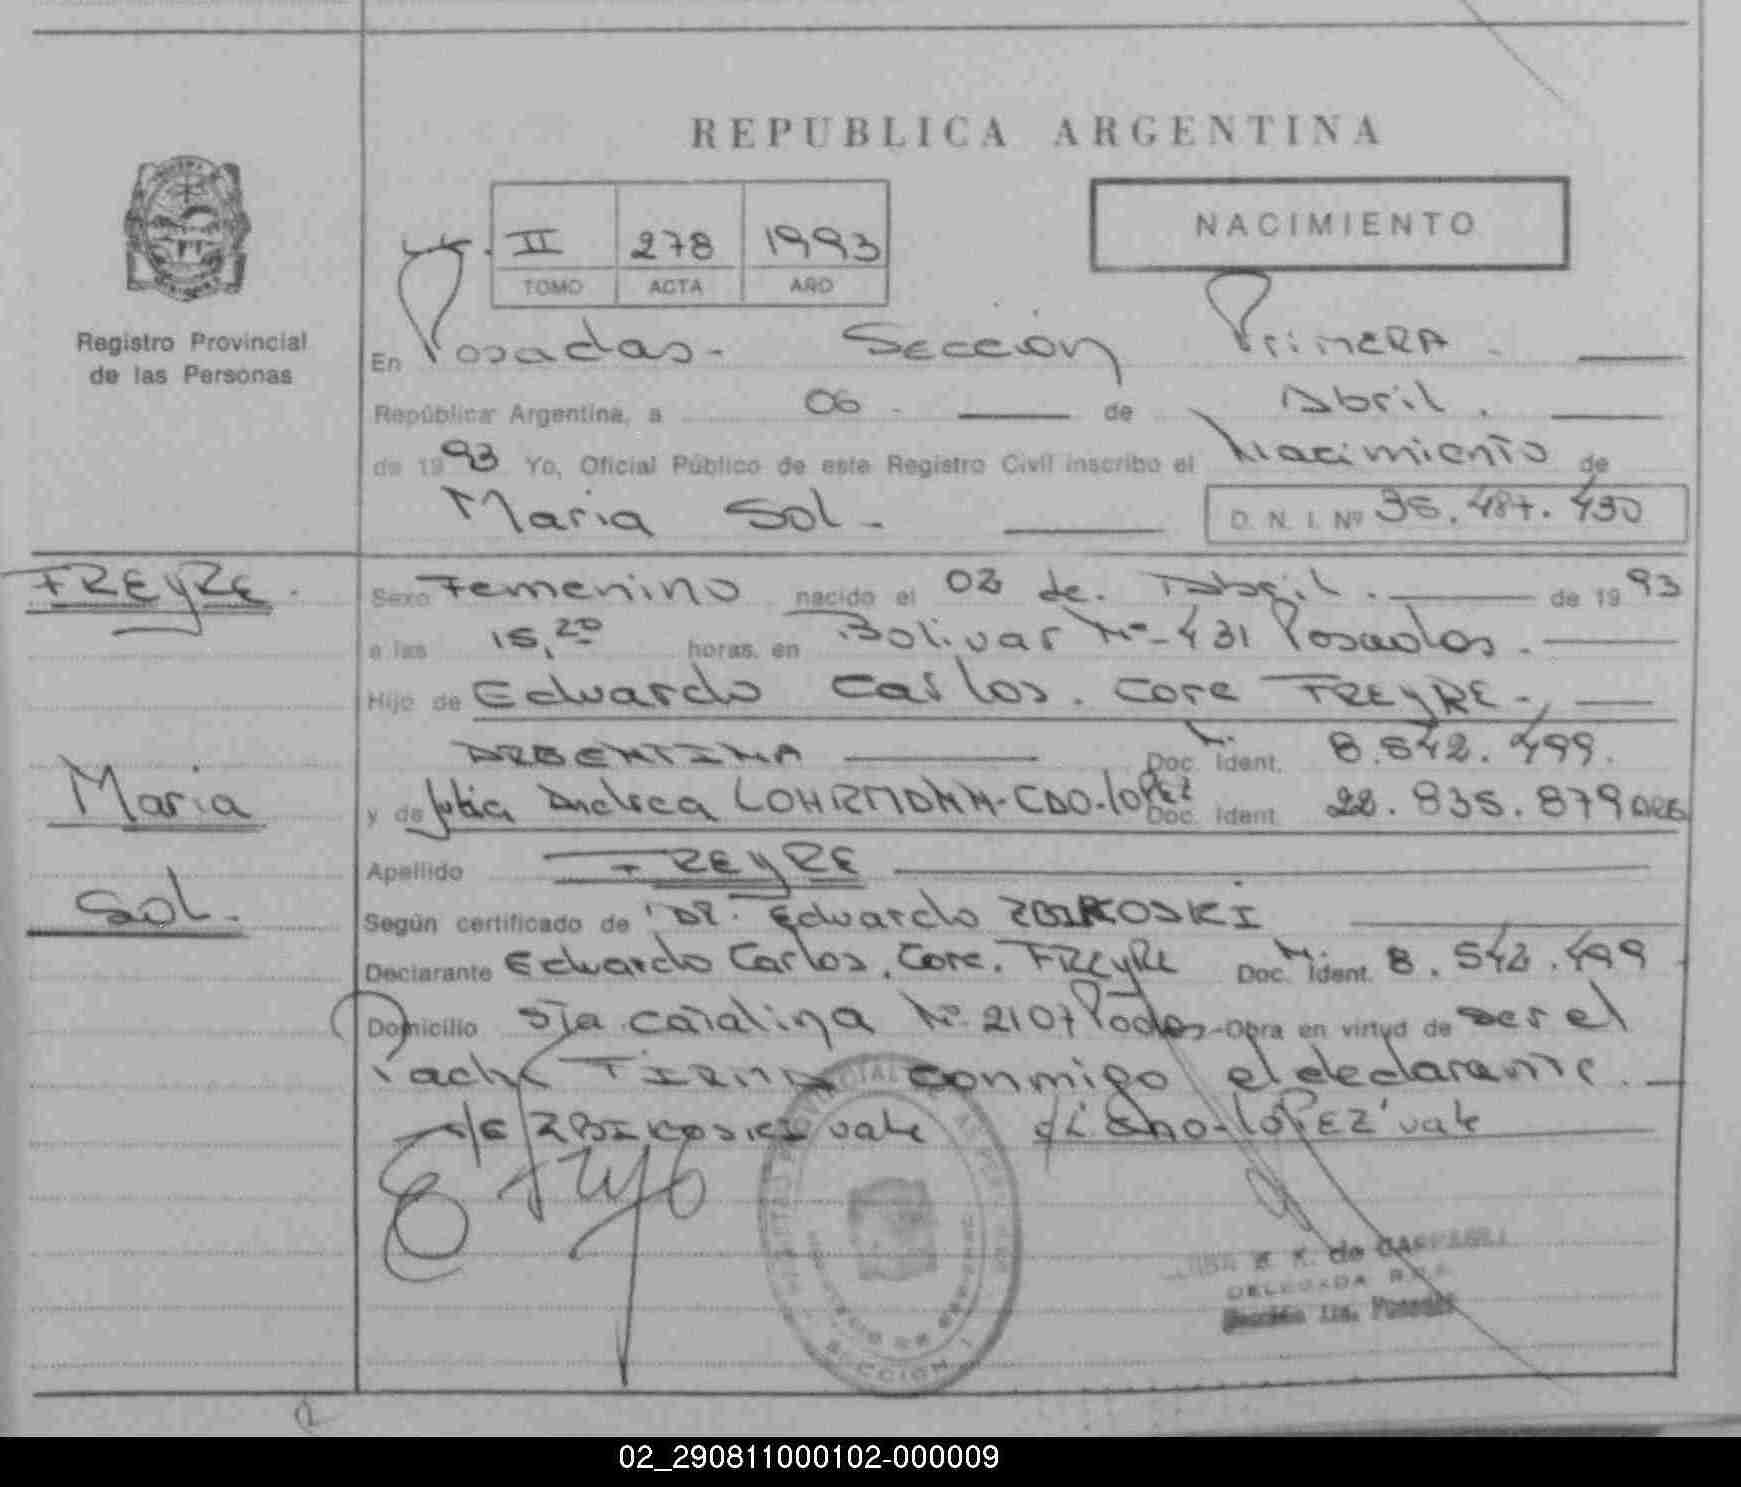 REPUBLICA ARGENTINA
NACIMIENTO
II 278 1993
TOMO ACTA AÑO
Registro Provincial
de las Personas
En Posadas- Sección Primera -
República Argentina, a 06 - de Abril.
de 1993 Yo, Oficial Público de este Registro Civil inscribo el Nacimiento de
Maria Sol-
D. N. I. Nº 35.487.430
FREYRE.
Maria
Sol.
Sexo Femenino nacido el 02 de. Abril. de 1993
a las 15,20 horas, en Bolivar Nº-431 Posadas.
Hijo de Eduardo Carlos. Core FREYRE-
ARGENTINA Doc. Ident. 8.542.499.
y de Julia Andrea LOHRMANN-CDO-LOPEZ Doc. Ident. 22.835.879 ARG
Apellido FREYRE
Según certificado de DR. Eduardo ZBIKOSKI
Declarante Eduardo Carlos. Core. FREYRE Doc. Ident. 8.542.499
Domicilio Sta Catalina Nº 2107 Podas-Obra en virtud de ser el
Padre FIRMA conmigo el declarante.
s/E ZBIKOSKI vale LOPEZ vale
SECCION 1
de
DELEGADA
02_290811000102-000009